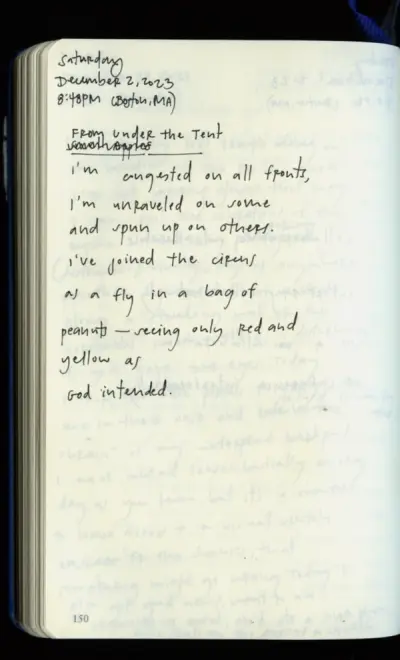 Saturday
December 2, 2023
8:48PM (Boston, MA)
From Under the Tent
I'm angested on all fronts,
I'm unraveled on some
and spun up on others.
I've joined the circus
as a fly in a bag of
peanuts — seeing only red and
yellow as
God intended.
150